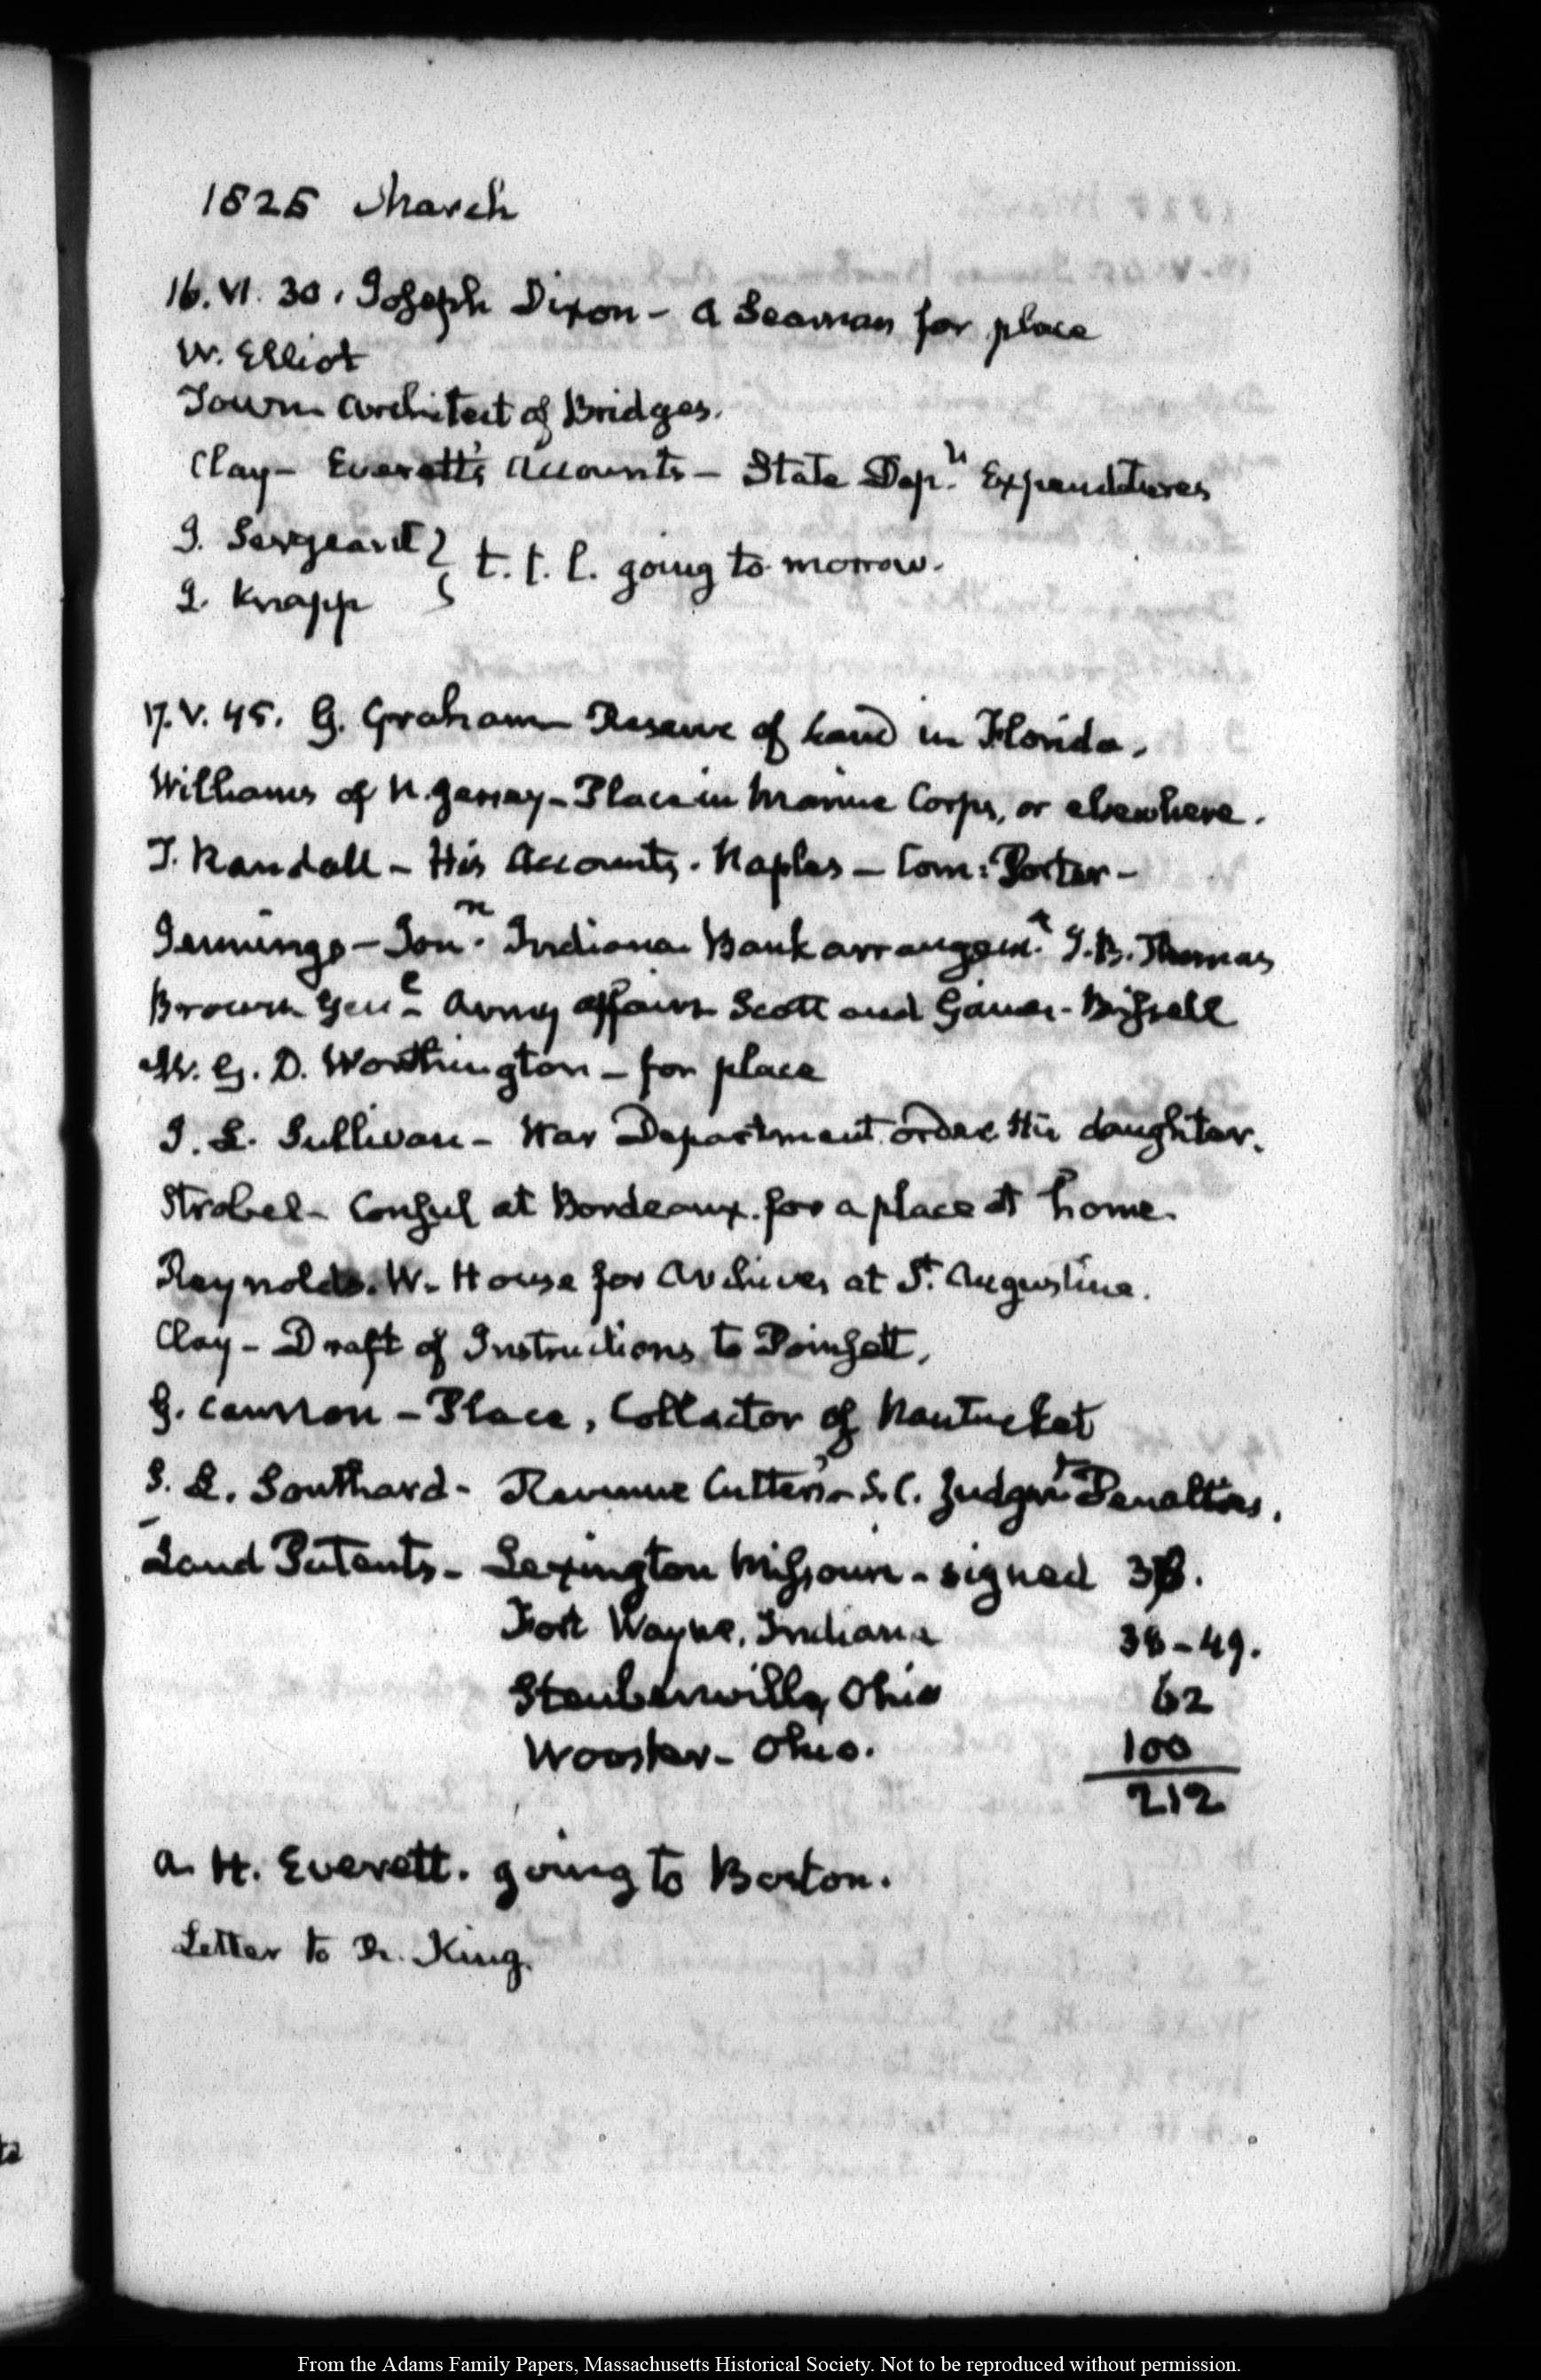 1825 March
16. VI. 30. Joseph Dixon - a Seaman for place
W. Elliot
Town Architect of Bridges.
Clay - Everett's Accounts - State Dep.t Expenditures
J. Sergeant
J. Knapp } t. t. l. going to morrow.
17. V. 45. G. Graham Reserve of land in Florida.
Williams of N. Jersey - Place in Marine Corps, or elsewhere.
T. Randall - His Accounts. Naples - Com: Porter -
Jennings - Jon.n Indiana Bank arrangem.t J. B. Thomas
Brown Gen.l Army affairs Scott and Gaines - Bissell
W. G. D. Worthington - for place
J. L. Sullivan - War Department order His daughter.
Strobel - Consul at Bordeaux. for a place at home.
Reynolds. W. House for Archives at St. Augustine.
Clay - Draft of Instructions to Poinsett.
G. Cannon - Place, Collector of Nantucket
S. L. Southard - Revenue Cutters - S. C. Judgm.t Penalties.
Land Patents - Lexington Missouri - signed
Fort Wayne, Indiana 38-49.
Steubenville, Ohio 62
Wooster - Ohio. 100
212
A. H. Everett. going to Boston.
Letter to Dr. King.
From the Adams Family Papers, Massachusetts Historical Society. Not to be reproduced without permission.